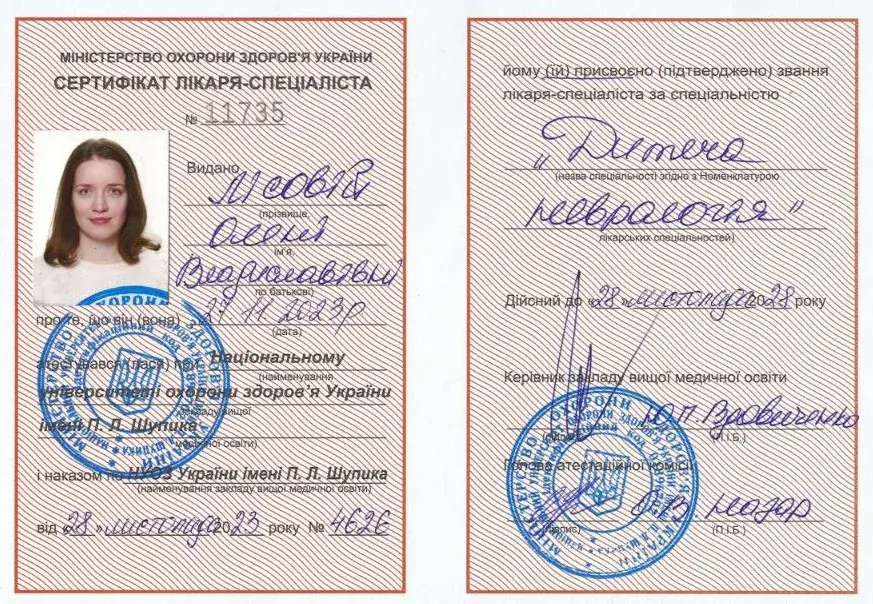 МІНІСТЕРСТВО ОХОРОНИ ЗДОРОВ'Я УКРАЇНИ
СЕРТИФІКАТ ЛІКАРЯ-СПЕЦІАЛІСТА
№ 11735
Видано Лісовій
(прізвище,
Олені
ім'я,
Владиславівній
по батькові)
про те, що він (вона) 27 11 2023р
(дата)
атестувався (лася) при Національному
(найменування
університеті охорони здоров'я України
закладу вищої
імені П. Л. Шупика
медичної освіти)
і наказом по НУОЗ України імені П. Л. Шупика
(найменування закладу вищої медичної освіти)
від «28» листопада 2023 року № 4626
йому (їй) присвоєно (підтверджено) звання
лікаря-спеціаліста за спеціальністю
„Дитяча
(назва спеціальності згідно з Номенклатурою
неврологія"
лікарських спеціальностей)
Дійсний до «28» листопада 2028 року
Керівник закладу вищої медичної освіти
Ю.П. Вдовиченко
(П.І.Б.)
Голова атестаційної комісії
О.В.
(підпис) (П.І.Б.)
МІНІСТЕРСТВО ОХОРОНИ ЗДОРОВ'Я УКРАЇНИ
МІНІСТЕРСТВО ОХОРОНИ ЗДОРОВ'Я УКРАЇНИ